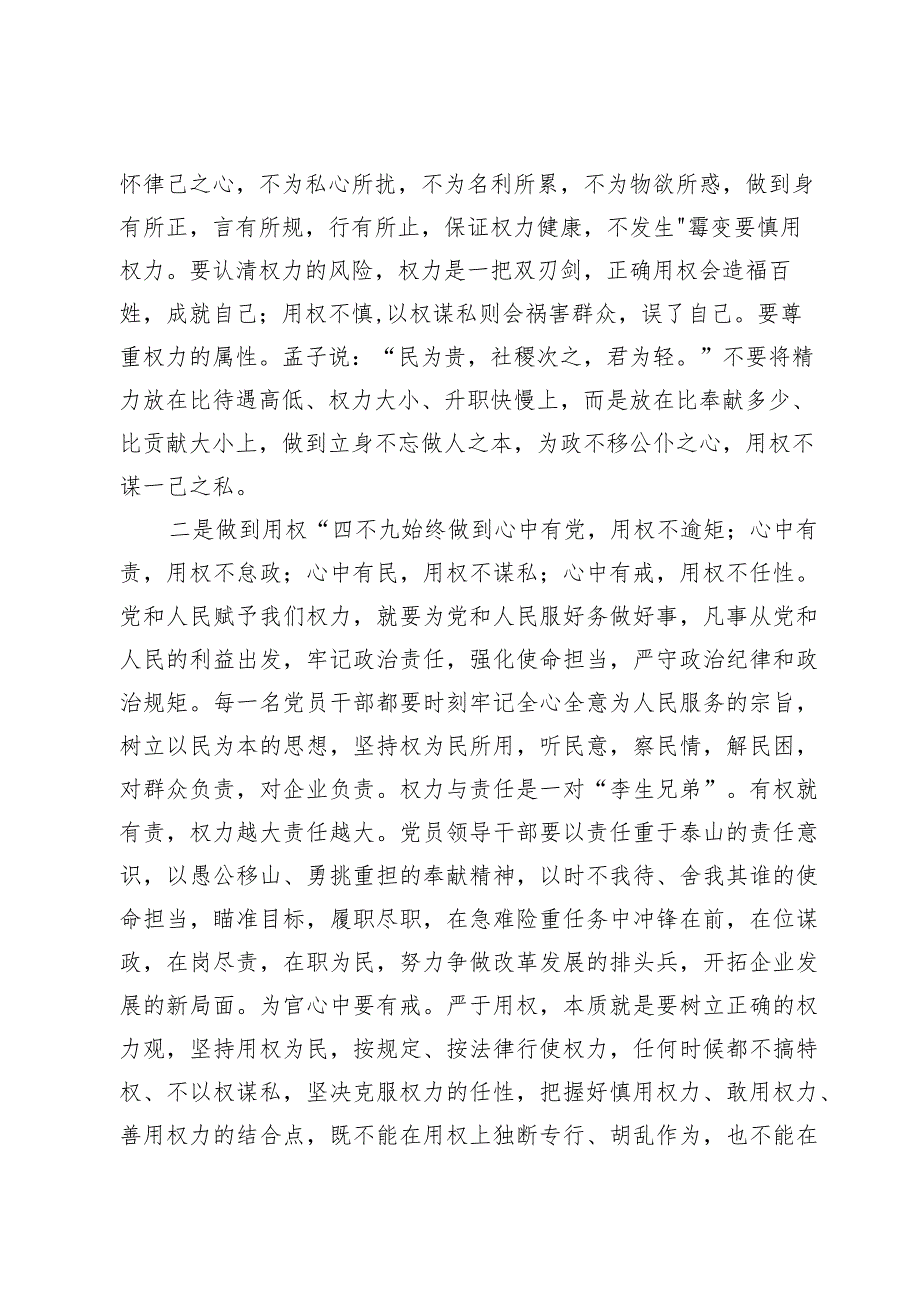 怀律己之心，不为私心所扰，不为名利所累，不为物欲所惑，做到身
有所正，言有所规，行有所止，保证权力健康，不发生"霉变要慎用
权力。要认清权力的风险，权力是一把双刃剑，正确用权会造福百
姓，成就自己；用权不慎,以权谋私则会祸害群众，误了自己。要尊
重权力的属性。孟子说：“民为贵，社稷次之，君为轻。”不要将精
力放在比待遇高低、权力大小、升职快慢上，而是放在比奉献多少、
比贡献大小上，做到立身不忘做人之本，为政不移公仆之心，用权不
谋一己之私。
二是做到用权“四不九始终做到心中有党，用权不逾矩；心中有
责，用权不怠政；心中有民，用权不谋私；心中有戒，用权不任性。
党和人民赋予我们权力，就要为党和人民服好务做好事，凡事从党和
人民的利益出发，牢记政治责任，强化使命担当，严守政治纪律和政
治规矩。每一名党员干部都要时刻牢记全心全意为人民服务的宗旨，
树立以民为本的思想，坚持权为民所用，听民意，察民情，解民困，
对群众负责，对企业负责。权力与责任是一对“李生兄弟”。有权就
有责，权力越大责任越大。党员领导干部要以责任重于泰山的责任意
识，以愚公移山、勇挑重担的奉献精神，以时不我待、舍我其谁的使
命担当，瞄准目标，履职尽职，在急难险重任务中冲锋在前，在位谋
政，在岗尽责，在职为民，努力争做改革发展的排头兵，开拓企业发
展的新局面。为官心中要有戒。严于用权，本质就是要树立正确的权
力观，坚持用权为民，按规定、按法律行使权力，任何时候都不搞特
权、不以权谋私，坚决克服权力的任性，把握好慎用权力、敢用权力、
善用权力的结合点，既不能在用权上独断专行、胡乱作为，也不能在